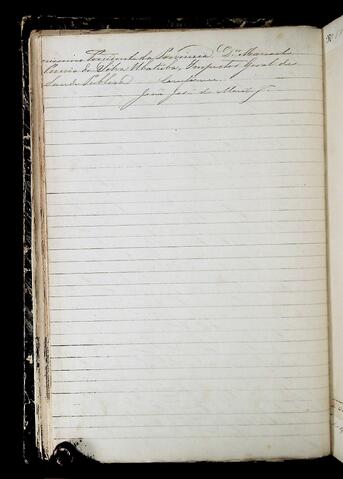 missimo Presidente da Provincia, Dr. Manoel
Correia da Silva Ubatuba, Inspector Geral da
Saude Publica. Conforme.
João José de
Nº